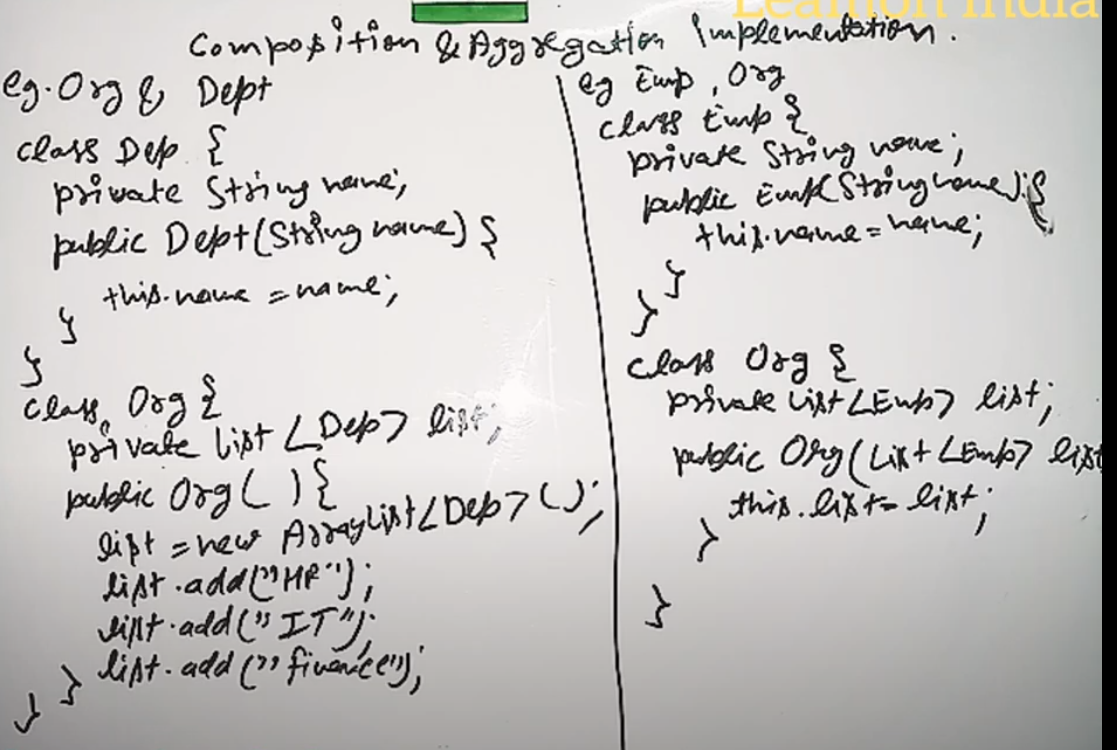 Learnon India
Composition & Aggregation Implementation.
eg. Org & Dept
class Dep {
private String name;
public Dept(String name) {
this.name = name;
}
}
class Org {
private List <Dep> list;
public Org( ) {
list = new ArrayList<Dep>();
list.add("HR");
list.add("IT");
list.add("finance");
}
}
eg Emp, Org
class Emp {
private String name;
public Emp(String name) {
this.name = name;
}
}
class Org {
private List <Emp> list;
public Org(List <Emp> list
this.list = list;
}
}